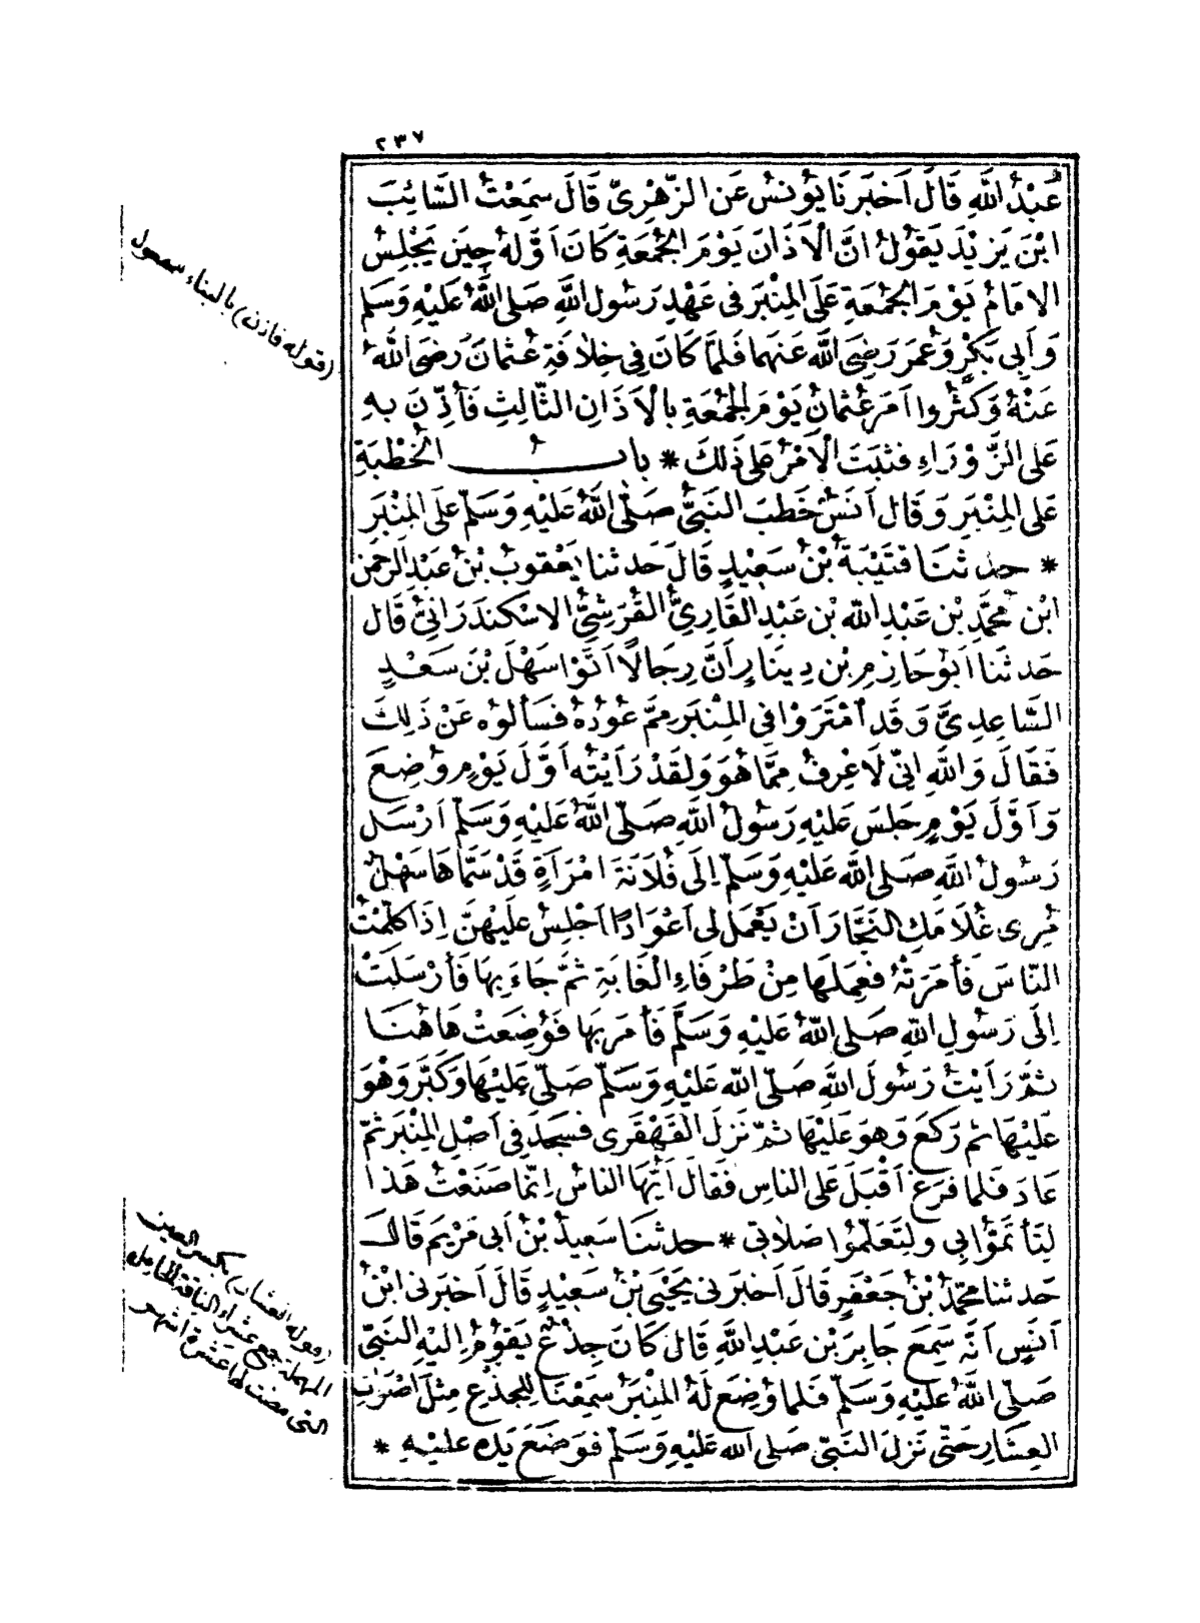 ٢٣٧
عَبْدُ اللَّهِ قَالَ اَخبَرَنَا يُونسُ عَنِ الزّهْرِىّ قَالَ سَمِعْتُ السَّائِبَ
ابْنَ يَزِيْدَ يَقوُلُ انَّ الْاَذَانَ يَوْمَ الجُمعَةِ كَانَ اَوَّلهُ حِينَ يَجْلِسُ
الامَامُ يَوْمَ الجُمُعَةِ عَلَى المِنْبَرِ فى عَهْدِ رَسُولِ اللَّهِ صَلى اللَّهُ عَلَيْهِ وَسَلم
وَاَبِى بَكْرٍ وَعُمَرَ رَضِىَ اللَّه عَنهُما فَلَمَّا كَانَ فِى خِلافَةِ عُثمَانَ رَضىَ اللهُ
عَنْهُ وَكَثُروا اَمَرَ عُثمانُ يَوْمَ الجُمُعَةِ بالْاَذَانِ الثَّالِثِ فَأُذّنَ بهِ
عَلى الزَّوْرَاءِ فَثبَتَ الْاَمْرُ عَلى ذَلكَ * بابُ الخُطْبَةِ
عَلى المِنْبَرِ وَقَال اَنسٌ خَطبَ النَبىُّ صَلّى اللَّهُ عَليْهِ وَسَلّمَ عَلَى المِنْبَرِ
* حدثنَا قتَيْبَةُ بْنُ سَعِيْدٍ قَالَ حَدثنا يَعْقوبُ بْنُ عَبْدِ الرحمٰن
ابْن محمَّدِ بْن عَبْدِ اللّه بْن عَبْدِ القَارِىُّ القُرَشِىُّ الاسْكندَرَانىُّ قَال
حَدثَنا اَبُوحَازمِ بْن دِينَارٍ اَنَّ رِجَالًا اَتَوْا سَهْلَ بْنَ سَعْدٍ
السَّاعِدِىَّ وَقَدِ اَمْتَرَوْا فى المِنْبَرِ مِمَّ عُودُهُ فَسَألوُه عَنْ ذَلِكَ
فَقَالَ وَاللَّهِ انِىّ لَاَعْرِفُ مِمَّا هُوَ وَلقَدْ رَاَيْتُه اَوَّلَ يَوْمٍ وُضِعَ
وَاَوَّلَ يَوْمٍ جَلَسَ عَلَيْهِ رَسُولُ اللَّهِ صَلّى اللَّهُ عَلَيْهِ وَسَلّمَ اَرْسَلَ
رَسُولُ اللَّهِ صَلى اللَّه عَليْهِ وَسَلّمَ اِلَى فُلَانَةَ امْرَاَةٍ قَدْ سَمَّاهَا سَهْلٌ
مُرِى غُلَامَكِ النَجَّارَ اَنْ يَعْمَلَ لى اَعْوَادًا اَجْلِسُ عَلَيْهنَّ اِذَا كلّمْتُ
النَّاسَ فَأمَرَتْهُ فعَمِلَهَا مِنْ طَرْفَاءِ الْغَابَةِ ثمَّ جَاءَ بِهَا فَأرْسَلَتْ
اِلَى رَسُولِ اللّهِ صَلى اللّهُ عَليْهِ وَسَلّمَ فَأمَرَ بهَا فَوُضِعَتْ هَاهُنَا
ثمَّ رَاَيْتُ رَسُولَ اللَّهِ صَلّى اللّه عَلَيْهِ وَسَلّمَ صَلّى عَلَيْهَا وَكَبَّرَ وَهْوَ
عَلَيْهَا ثم رَكعَ وَهوَ عَلَيْهَا ثمّ نزَلَ القَهْقَرى فَسَجَدَ فِى اَصْلِ المِنْبَرِ ثمّ
عَادَ فلما فرَغَ اَقْبَلَ عَلى الناسِ فقَالَ اَيُّهَا الناسُ اِنمّا صَنَعْتُ هَذا
لِتَأتَمّوُا بِى وَلتِعَلّموُا صَلاتى * حدثنَا سَعِيدُ بْنُ اَبى مَرْيمَ قَالَ
حَدثنا محَمّدُ بْنُ جَعْفَرٍ قَالَ اَخبرَنى يَحْيَى بْنُ سَعِيْدٍ قَالَ اَخبَرَنى ابْنُ
اَنَسٍ اَنَّه سَمِعَ جَابِرَ بْن عَبْدِ اللَّهِ قَالَ كَانَ جِذْعٌ يَقوُمُ اِليْهِ النَبىّ
صَلّى اللَّهُ عَليْهِ وَسَلّمَ فَلما وُضِعَ لَهُ المِنْبَرُ سَمِعْنَا لِلْجذْعِ مِثلَ اَصْوَاتِ
العِشَارِ حَتّى نزَلَ النَبّىّ صَلى الله عَليْهِ وَسَلّمَ فوَضَعَ يَدَه عَليْهِ *
(قوله فاذن) بالبناء للمجهول
(قوله العشار) بكسر العين
المهملة جمع عشراء الناقة الحامل
التى مضت لها عشرة اشهر